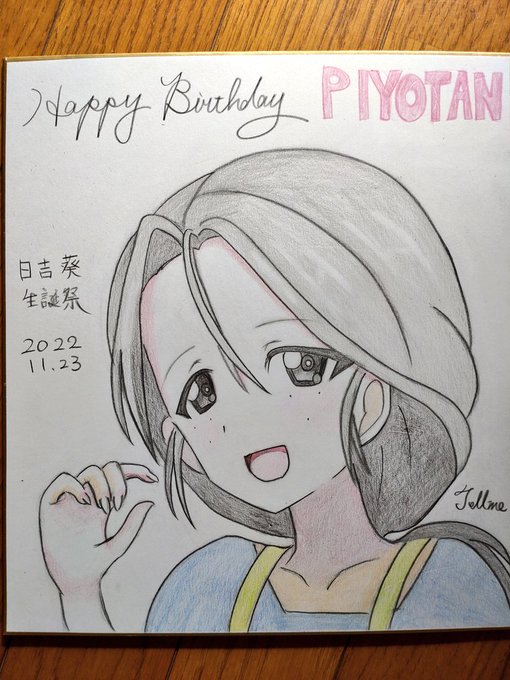 Happy Birthday PIYOTAN
日吉 葵
生誕祭
2022
11.23
Tellme